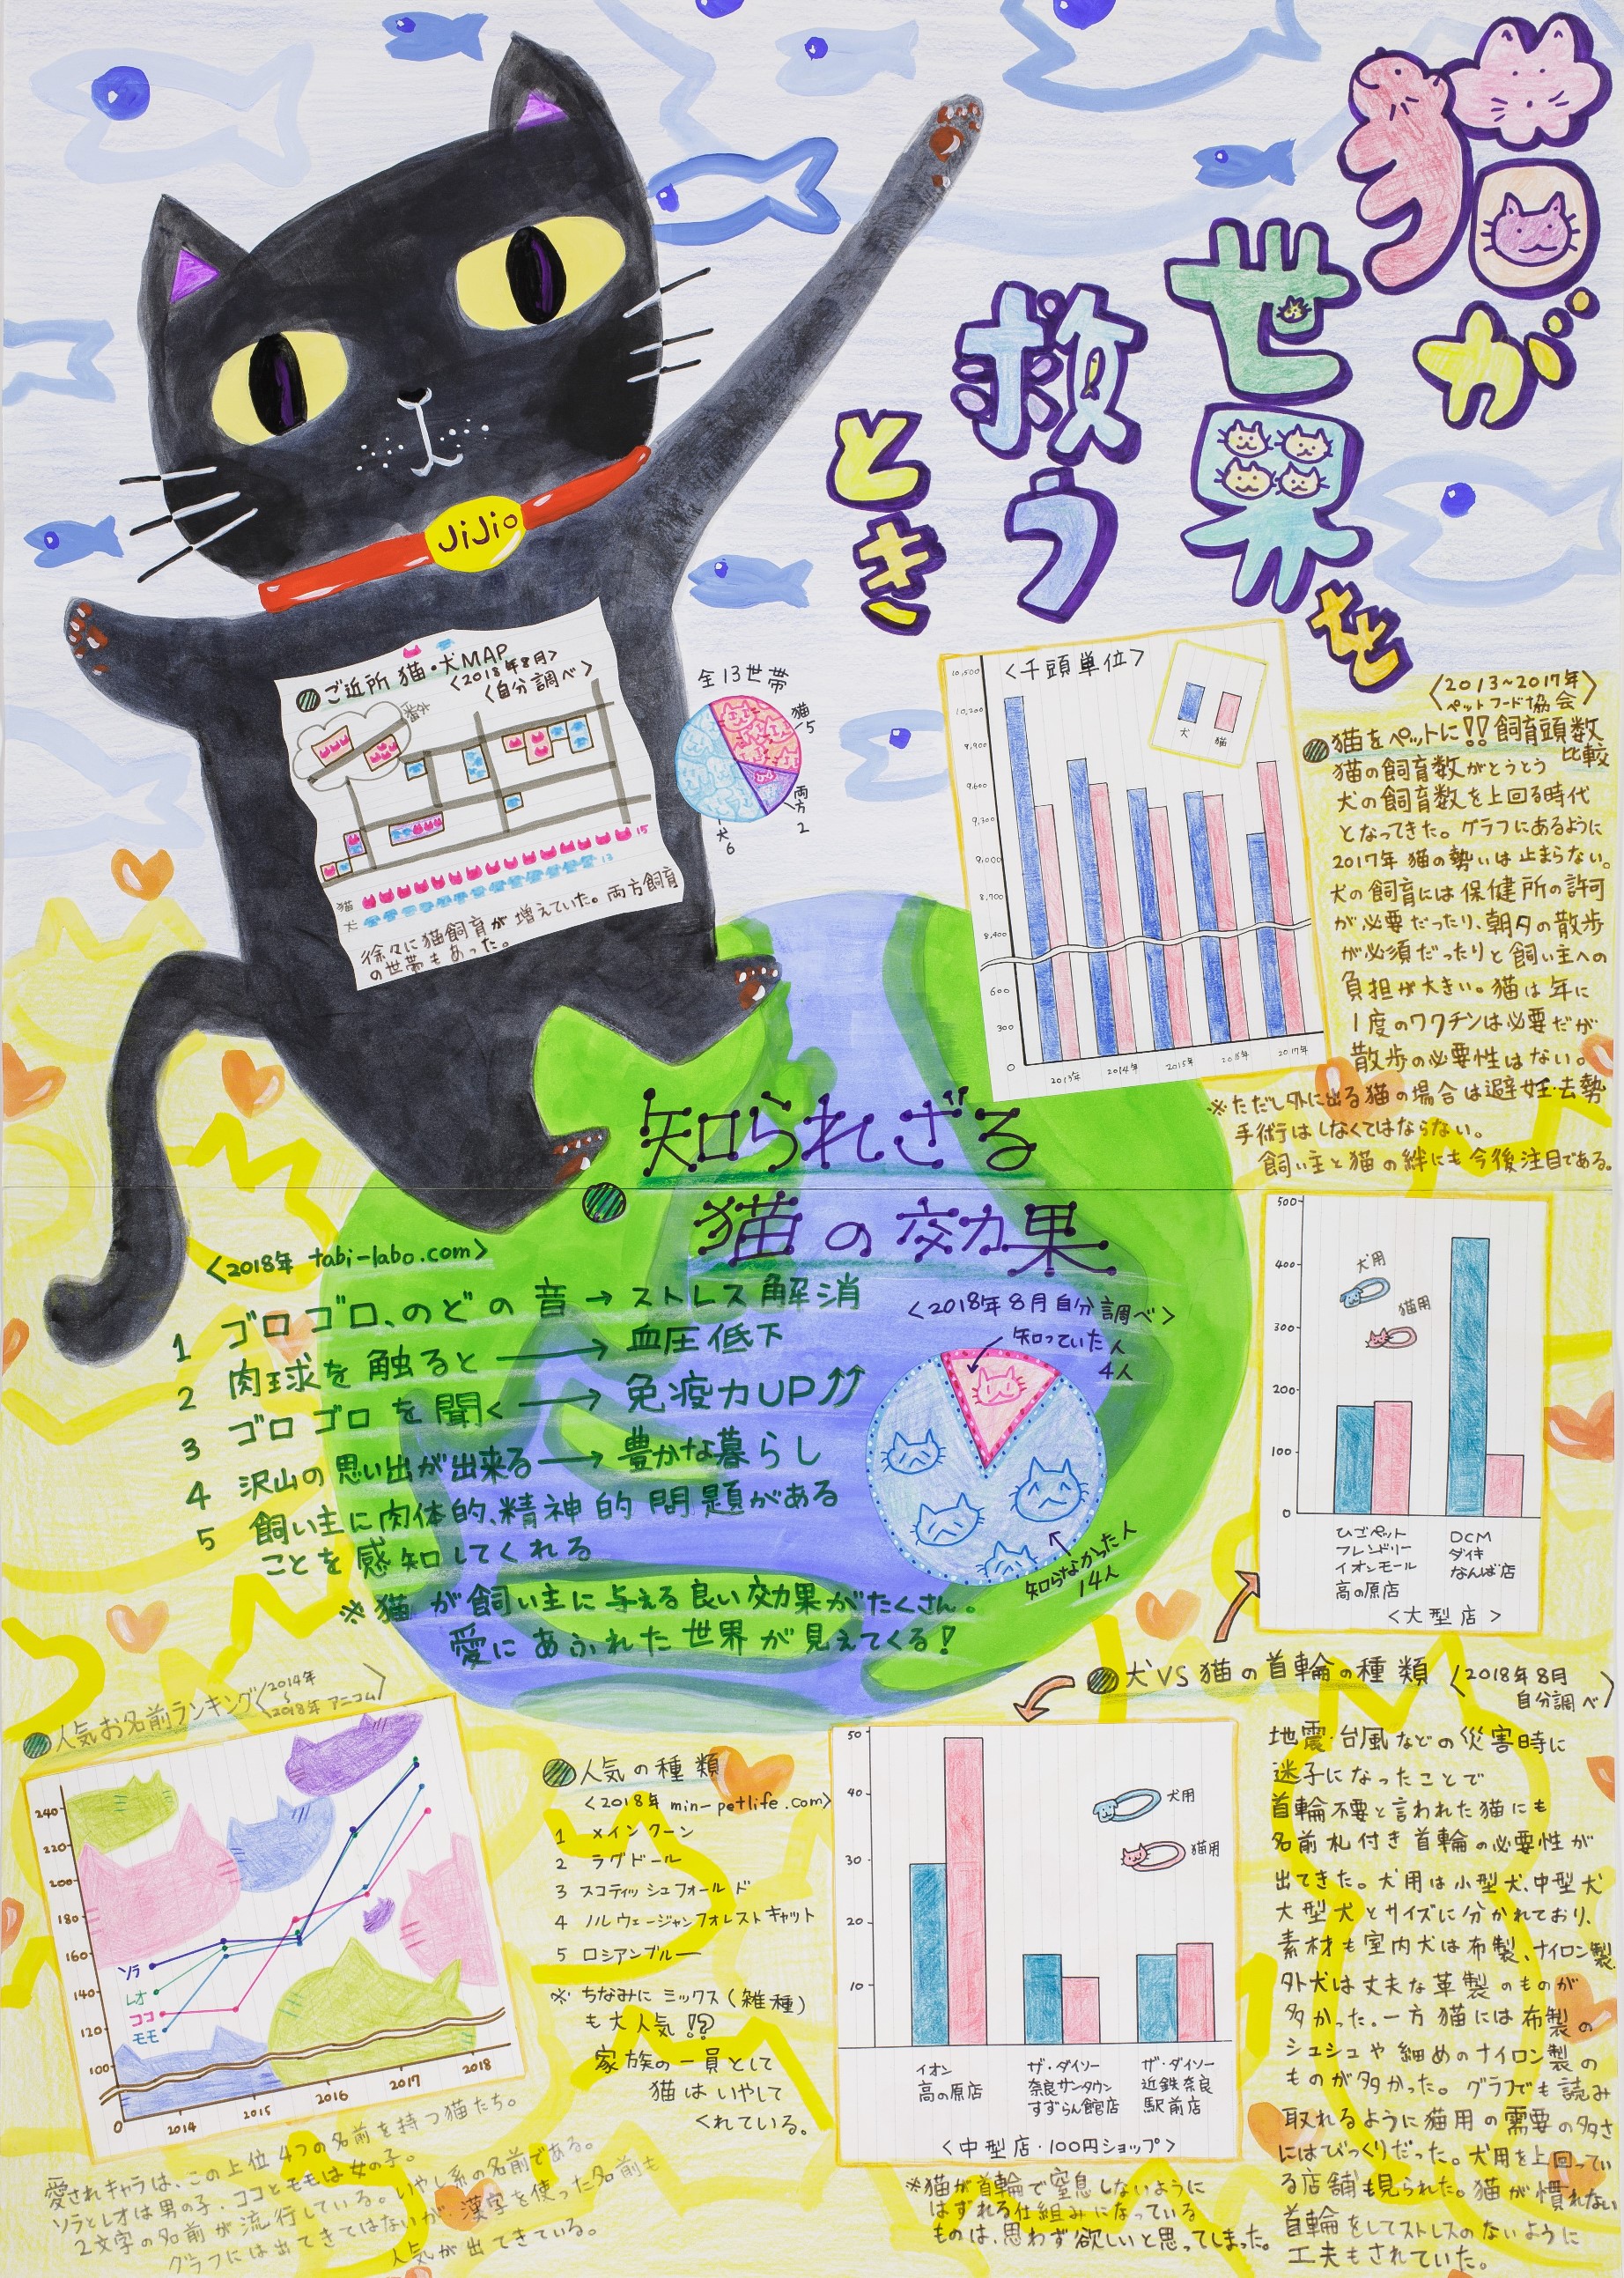 猫が
世界を
救う
とき
JiJi
ご近所 猫・犬MAP
<2018年8月>
<自分調べ>
猫 15
犬 13
徐々に猫飼育が増えていた。両方飼育
の世帯もあった。
全13世帯
猫5
両方2
犬6
<千頭単位>
犬 猫
10,500
9,900
9,600
9,300
9,000
8,700
8,400
600
300
0
2013年 2014年 2015年 2016年 2017年
<2013~2017年>
ペットフード協会
猫をペットに!!飼育頭数
比較
猫の飼育数がとうとう
犬の飼育数を上回る時代
となってきた。グラフにあるように
2017年 猫の勢いは止まらない。
犬の飼育には保健所の許可
が必要だったり、朝夕の散歩
が必須だったりと飼い主への
負担が大きい。猫は年に
1度のワクチンは必要だが
散歩の必要性はない。
※ただし外に出る猫の場合は避妊・去勢
手術はしなくてはならない。
飼い主と猫の絆にも今後注目である。
知られざる
猫の効果
<2018年 tabi-labo.com>
1 ゴロゴロ、のどの音→ストレス解消
2 肉球を触ると→血圧低下
3 ゴロゴロを聞く→免疫力UP↑↑
4 沢山の思い出が出来る→豊かな暮らし
5 飼い主に肉体的、精神的問題がある
ことを感知してくれる
※猫が飼い主に与える良い効果がたくさん。
愛にあふれた世界が見えてくる!
<2018年8月自分調べ>
知っていた人
4人
知らなかった人
14人
500
400
300
200
100
0
犬用
猫用
ひごペット
フレンドリー
イオンモール
高の原店
DCM
ダイキ
なんば店
<大型店>
犬VS猫の首輪の種類 <2018年8月
自分調べ>
地震・台風などの災害時に
迷子になったことで
首輪不要と言われた猫にも
名前札付き首輪の必要性が
出てきた。犬用は小型犬、中型犬
大型犬とサイズに分かれており、
素材も室内犬は布製、ナイロン製
外犬は丈夫な革製のものが
多かった。一方猫には布製の
シュシュや細めのナイロン製の
ものが多かった。グラフでも読み
取れるように猫用の需要の多さ
にはびっくりだった。犬用を上回ってい
る店舗も見られた。猫が慣れない
首輪をしてストレスのないように
工夫もされていた。
50
40
30
20
10
犬用
猫用
イオン
高の原店
ザ・ダイソー
奈良サンタウン
すずらん館店
ザ・ダイソー
近鉄奈良
駅前店
<中型店・100円ショップ>
※猫が首輪で窒息しないように
はずれる仕組みになっている
ものは、思わず欲しいと思ってしまった。
人気お名前ランキング<2014年
~
2018年 アニコム>
240
220
200
180
160
140
120
100
0
ソラ
レオ
ココ
モモ
2014 2015 2016 2017 2018
愛されキャラは、この上位4つの名前を持つ猫たち。
ソラとレオは男の子・ココとモモは女の子。
2文字の名前が流行している。いやし系の名前である。
グラフには出てきてはないが、漢字を使った名前も
人気が出てきている。
人気の種類
<2018年 min-petlife.com>
1 メインクーン
2 ラグドール
3 スコティッシュフォールド
4 ノルウェージャンフォレストキャット
5 ロシアンブルー
※ちなみにミックス(雑種)
も大人気!?
家族の一員として
猫はいやして
くれている。